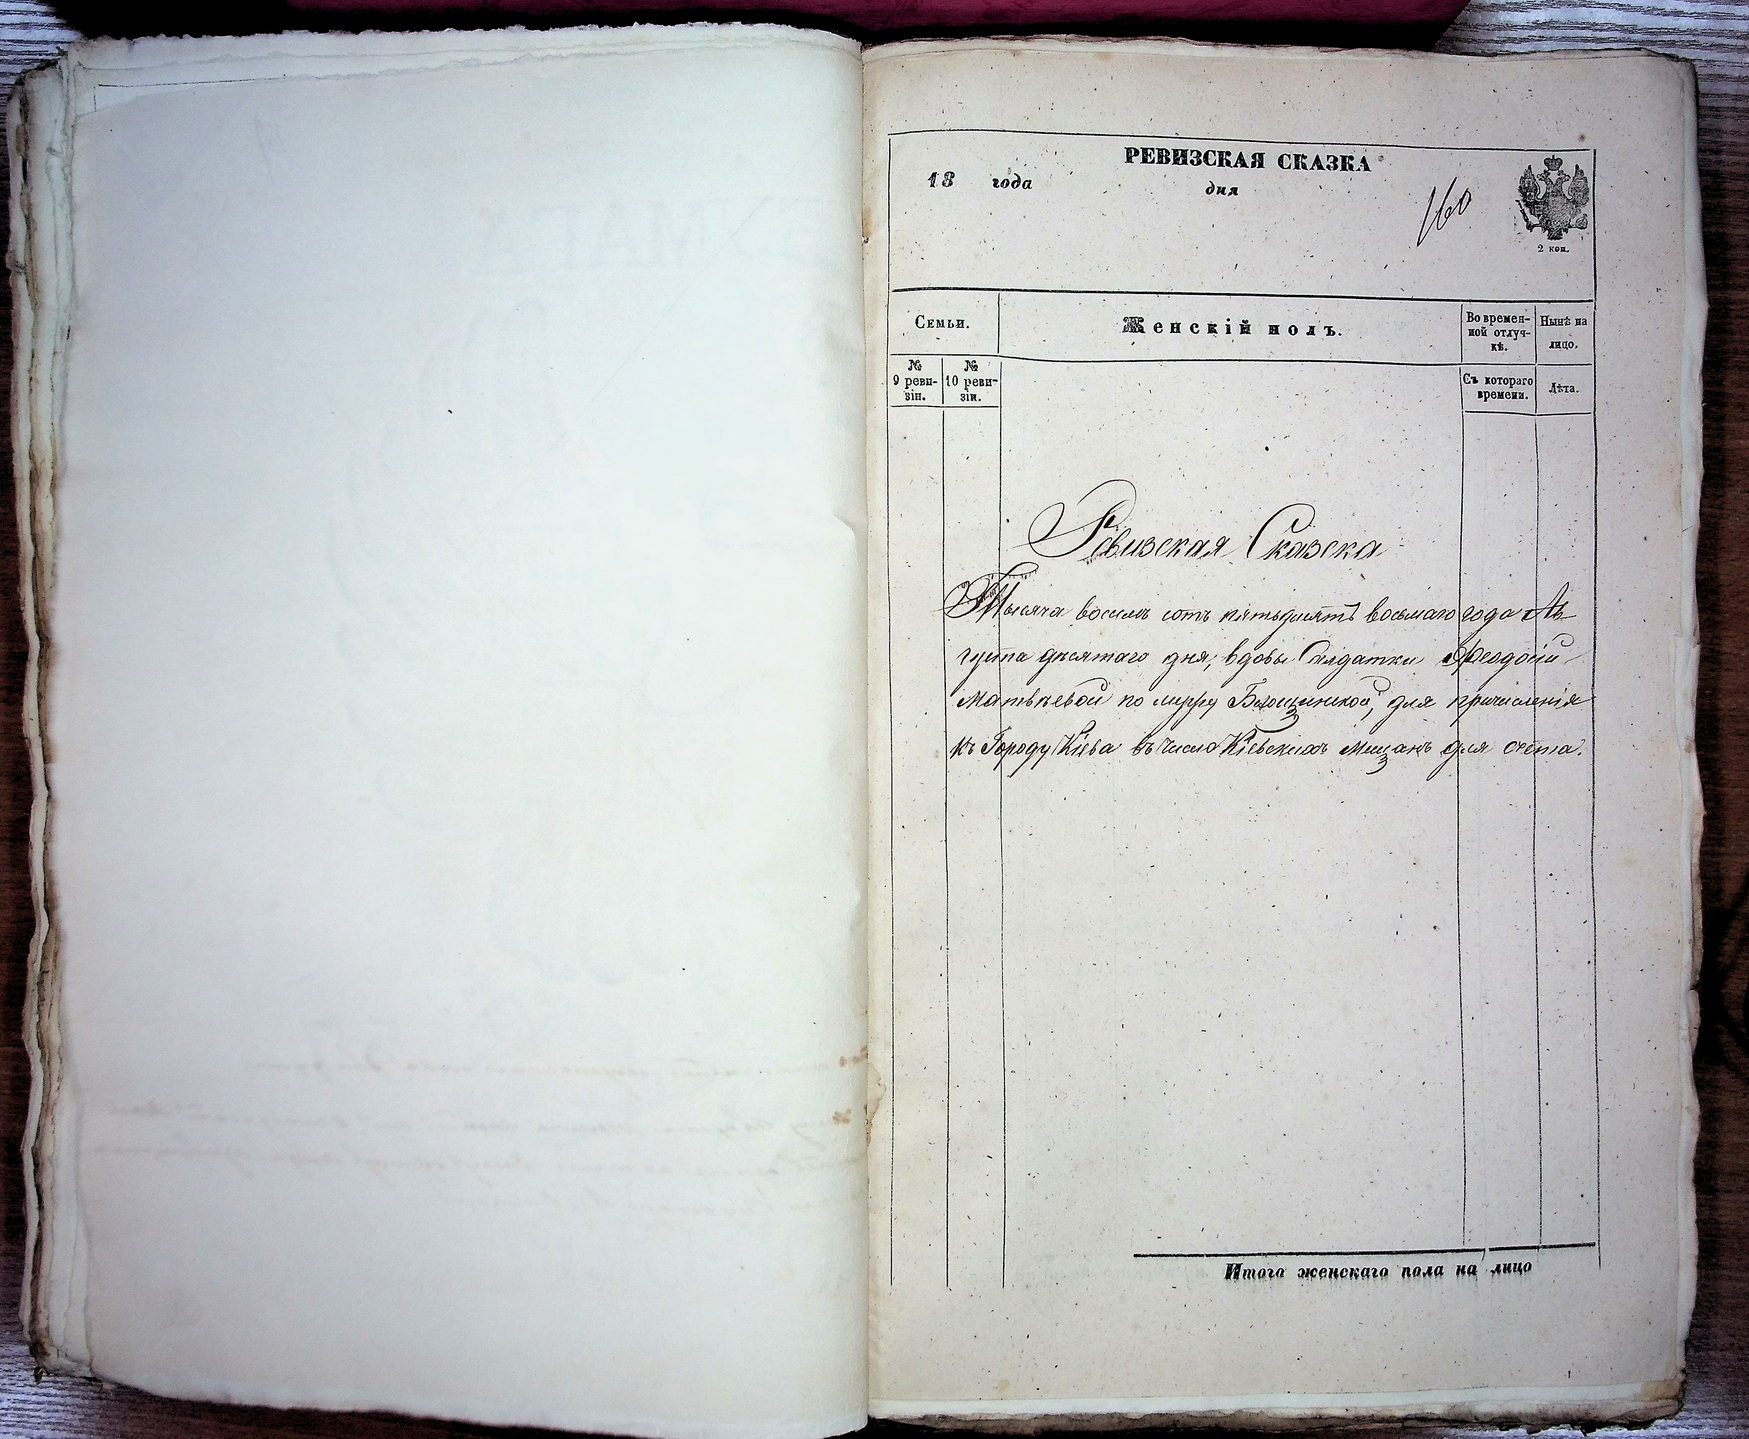 РЕВИЗСКАЯ СКАЗКА
18 года дня
160
2 коп.
Семьи.
Женскій полъ.
Во времен-
ной отлуч-
кѣ.
Нынѣ на
лицо.
№
9 реви-
зіи.
№
10 реви-
зіи.
Съ котораго
времени.
Лѣта.
Ревизская Сказска
Тысяча восемь сотъ пятьдесятъ восьмаго года Ав-
густа десятаго дня, вдовы Салдатки Феодосіи
Матвѣевой по мужу для причисленія
къ Городу Кіева въ число Кіевскихъ Мещанъ для счета.
Итого женскаго пола на лицо